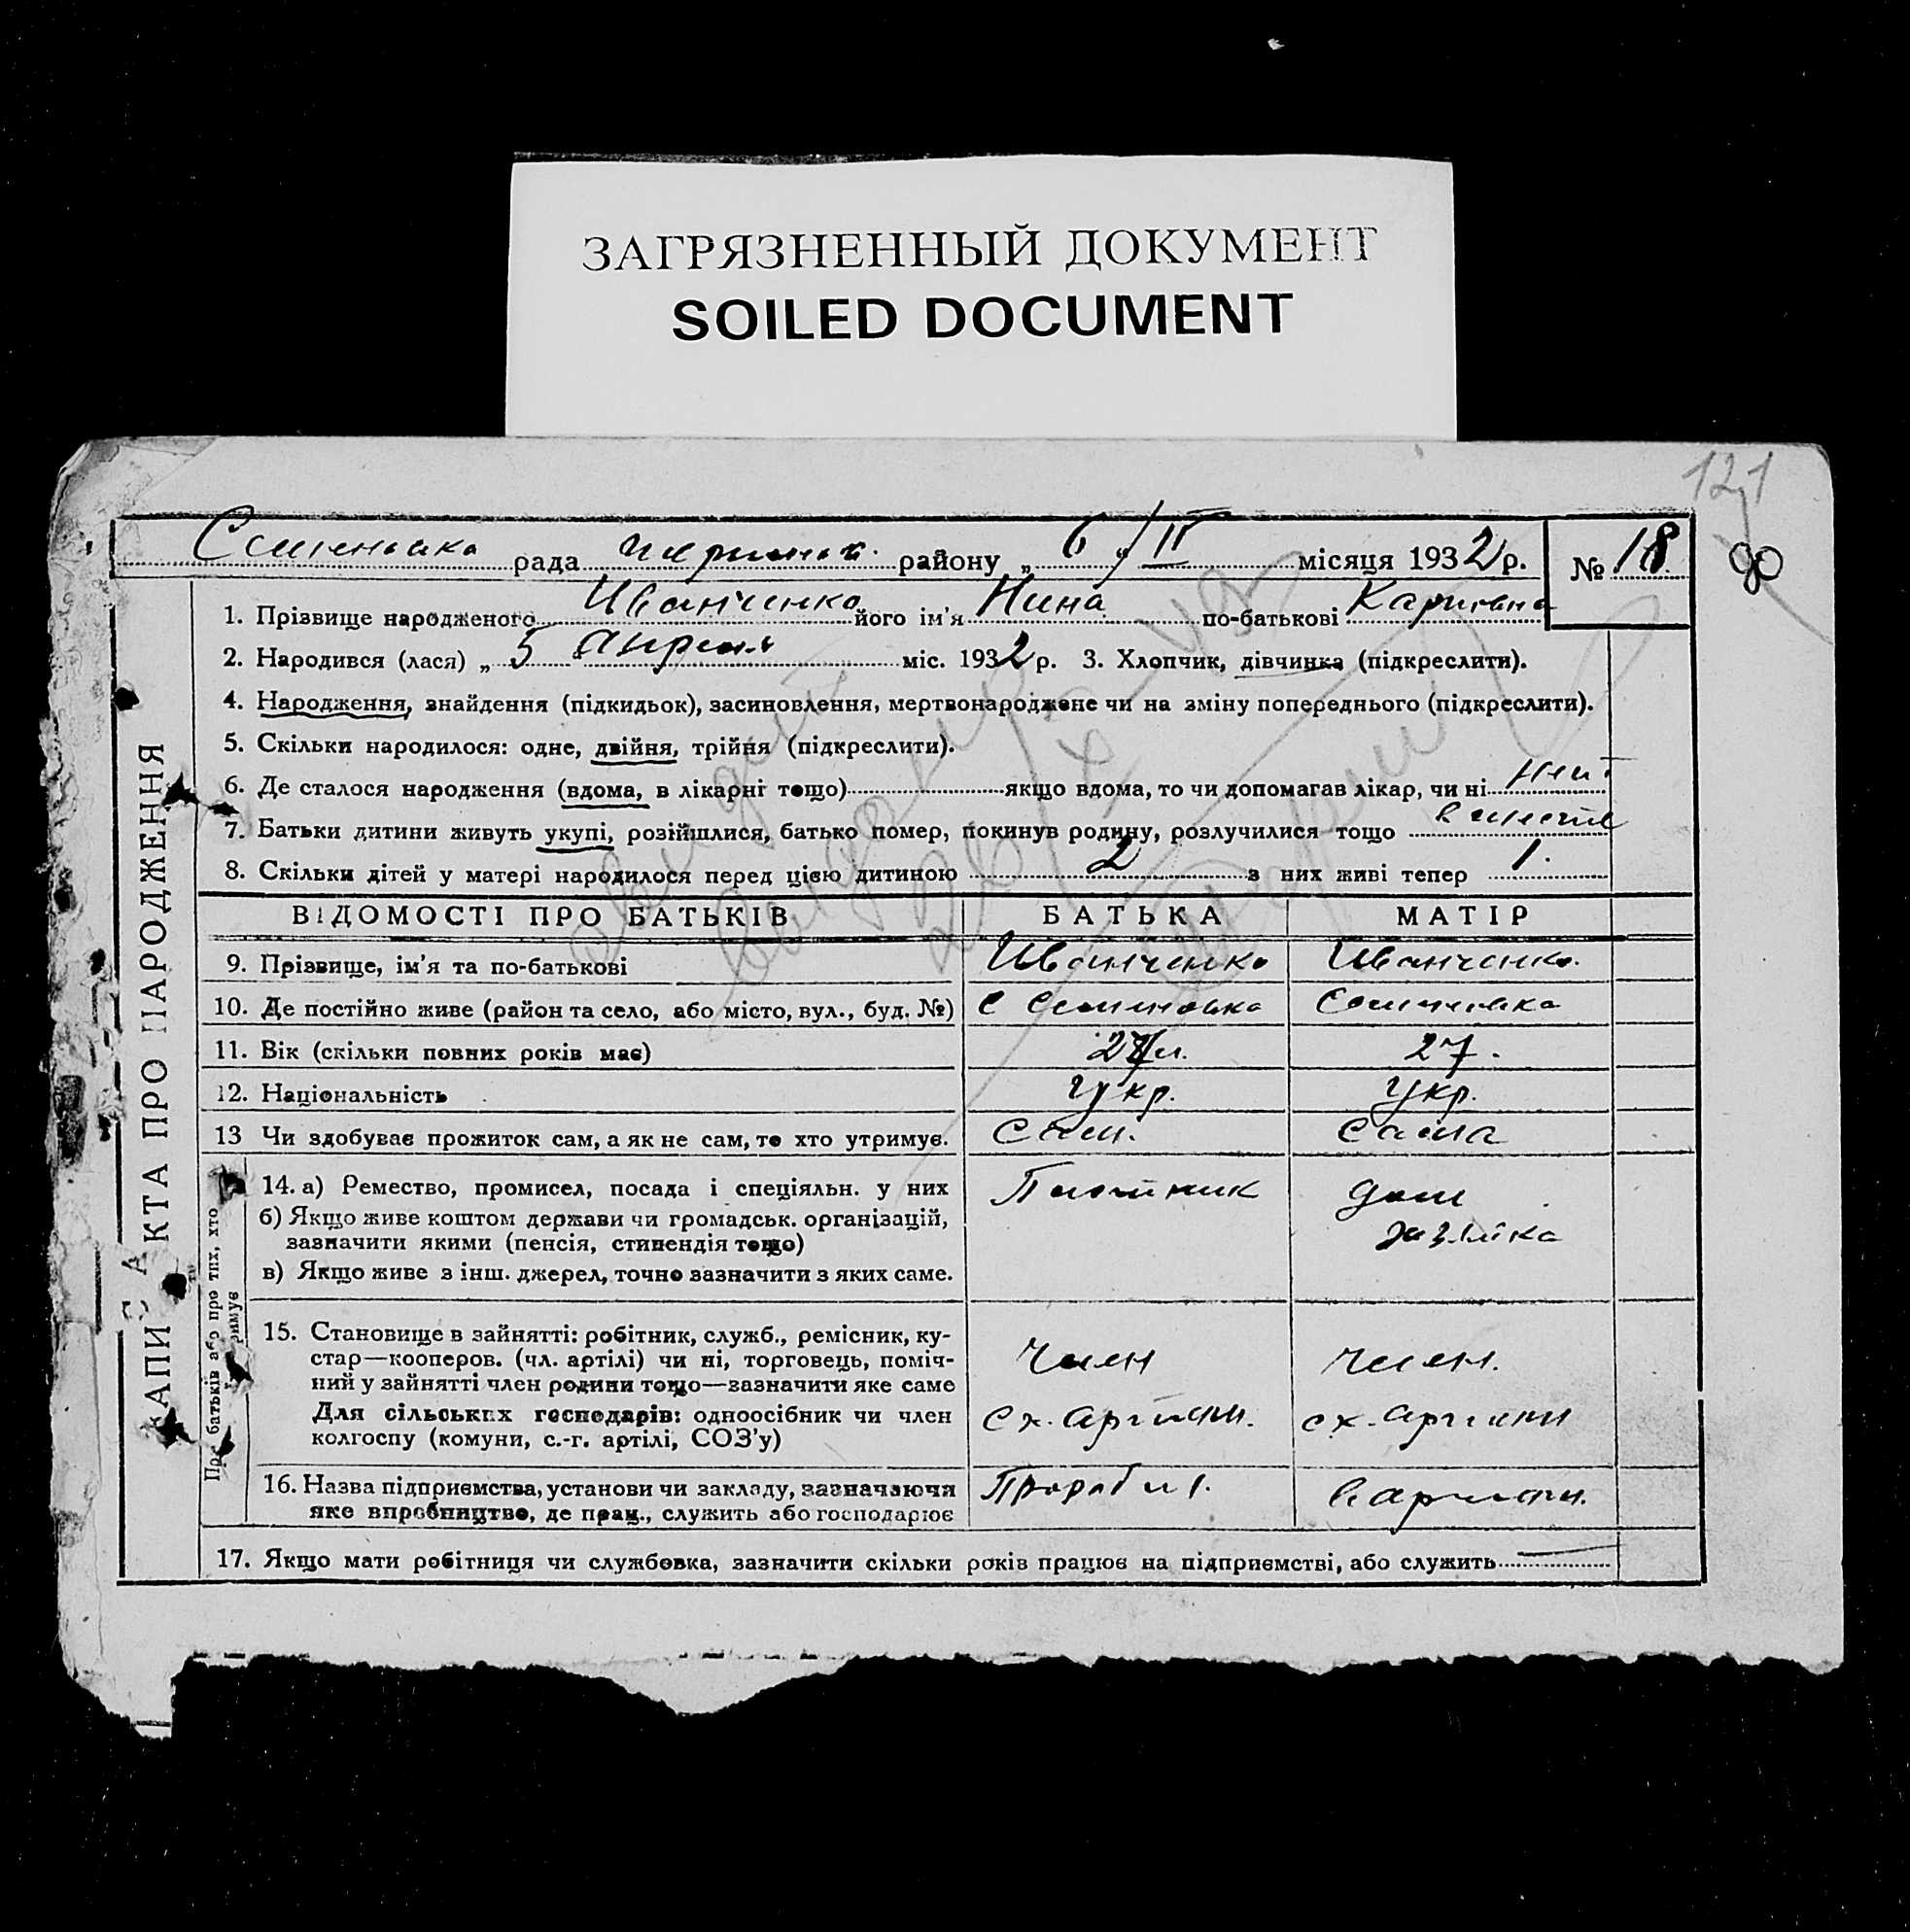 ЗАГРЯЗНЕННЫЙ ДОКУМЕНТ
SOILED DOCUMENT
121
90
рада району „ 6 “ / II місяця 1932 р. № 18
1. Прізвище народженого Иванченко його ім'я Нина по-батькові
2. Народився (лася) „ 5 “ апрель міс. 1932 р. 3. Хлопчик, дівчинка (підкреслити).
4. Народження, знайдення (підкидьок), засиновлення, мертвонароджене чи на зміну попереднього (підкреслити).
5. Скільки народилося: одне, двійня, трійня (підкреслити).
6. Де сталося народження (вдома, в лікарні тощо) якщо вдома, то чи допомагав лікар, чи ні нет
7. Батьки дитини живуть укупі, розійшлися, батько помер, покинув родину, розлучилися тощо вместе
8. Скільки дітей у матері народилося перед цією дитиною 2 з них живі тепер 1.
ВІДОМОСТІ ПРО БАТЬКІВ БАТЬКА МАТІР
9. Прізвище, ім'я та по-батькові Иванченко Иванченко
10. Де постійно живе (район та село, або місто, вул., буд. №)
11. Вік (скільки повних років має) 27.
12. Національність укр. укр.
13 Чи здобуває прожиток сам, а як не сам, то хто утримує. Сам. Сама
14. а) Ремество, промисел, посада і спеціяльн. у них Плотник дом
б) Якщо живе коштом держави чи громадськ. організацій,
зазначити якими (пенсія, стипендія тощо) хазяйка
в) Якщо живе з інш. джерел, точно зазначити з яких саме.
15. Становище в зайнятті: робітник, служб., ремісник, ку-
стар—кооперов. (чл. артілі) чи ні, торговець, поміч- член член.
ний у зайнятті член родини тощо—зазначити яке саме
Для сільських господарів: одноосібник чи член сх. артили. сх. артили
колгоспу (комуни, с.-г. артілі, СОЗ'у)
16. Назва підприємства, установи чи закладу, зазначаючи
яке виробництво, де прац., служить або господарює
17. Якщо мати робітниця чи службовка, зазначити скільки років працює на підприємстві, або служить —
АПИС АКТА ПРО НАРОДЖЕННЯ
батьків або про тих, хто